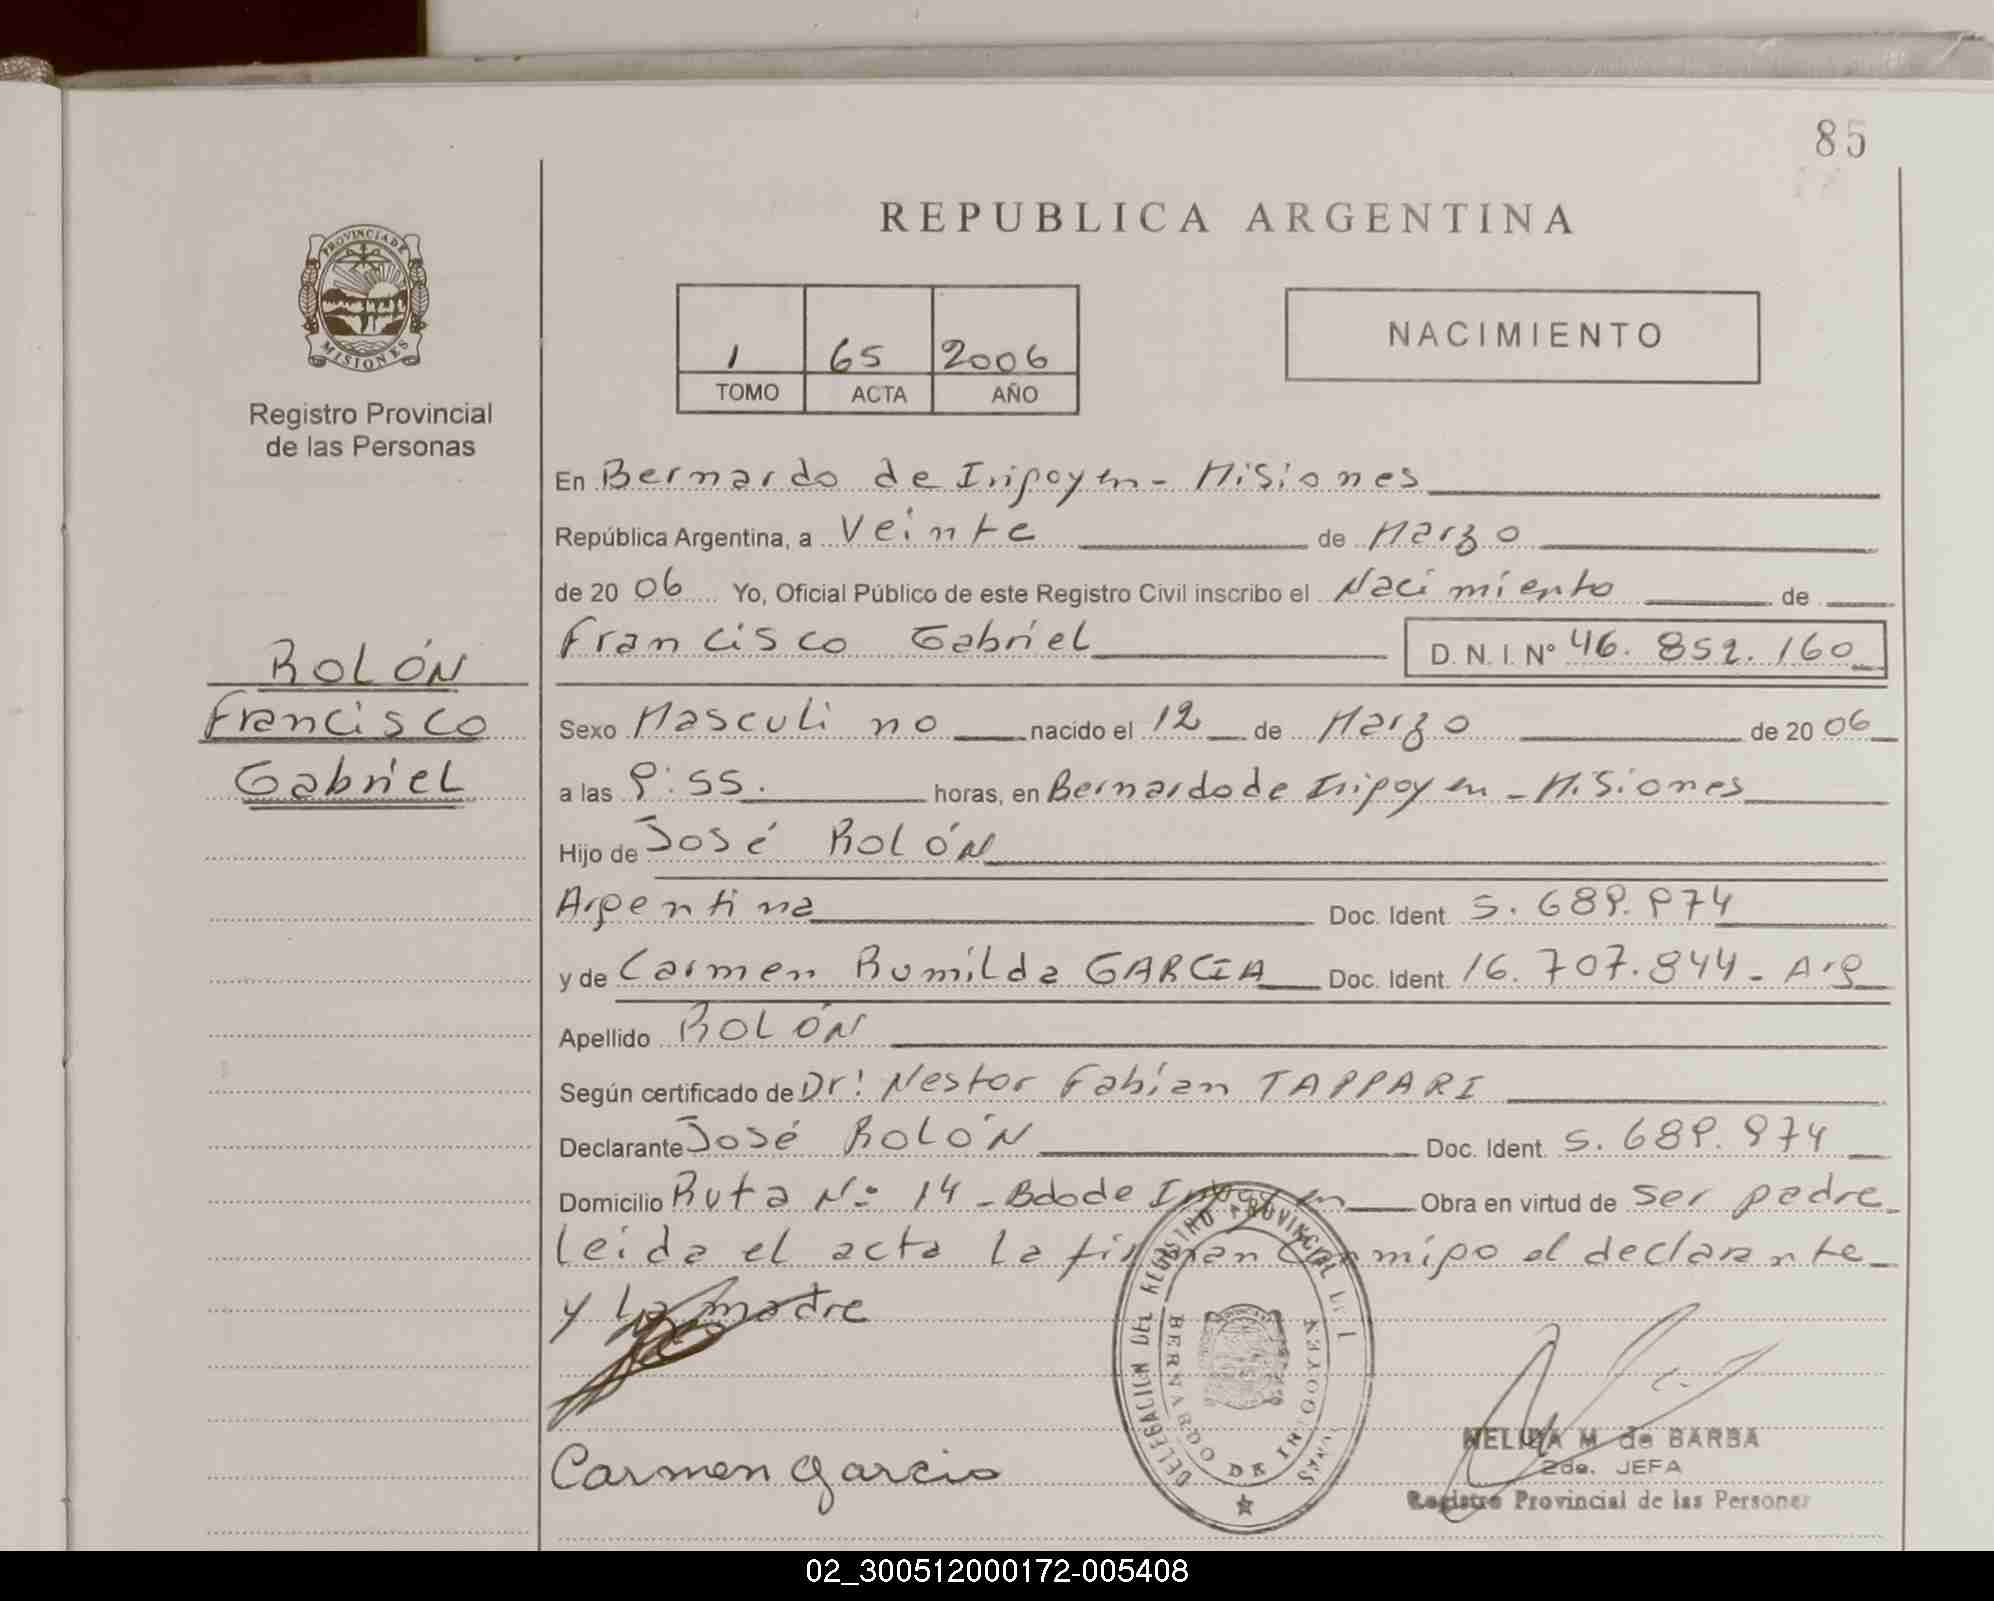 85
REPUBLICA ARGENTINA
PROVINCIA DE
MISIONES
Registro Provincial
de las Personas
1 65 2006
TOMO ACTA AÑO
NACIMIENTO
En Bernardo de Irigoyen - Misiones
República Argentina, a Veinte de Marzo
de 20 06 Yo, Oficial Público de este Registro Civil inscribo el Nacimiento de
Francisco Gabriel D. N. I. Nº 46. 852. 160
ROLÓN
Francisco
Gabriel
Sexo Masculino nacido el 12 de Marzo de 20 06
a las 9:55. horas, en Bernardo de Irigoyen - Misiones
Hijo de José ROLÓN
Argentina Doc. Ident. 5. 689. 974
y de Carmen Romilda GARCIA Doc. Ident. 16. 707. 844 - Arg
Apellido ROLÓN
Según certificado de Dr: Nestor Fabían TAPPARI
Declarante José ROLÓN Doc. Ident. 5. 689. 974
Domicilio Ruta Nº 14 - Bdo de Irigoyen Obra en virtud de ser padre
leida el acta la firman conmigo el declarante
y la madre
Carmen Garcia
DELEGACION DEL REGISTRO PROVINCIAL DE L
BERNARDO DE IRIGOYEN
NELIDA M. de BARBA
2da. JEFA
Registro Provincial de las Personas
02_300512000172-005408